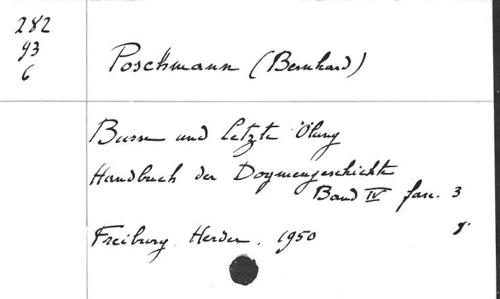 282
93
6
Poschmann (Bernhard)
Busse und letzte Ölung
Handbuch der Dogmengeschichte
Band IV fasc. 3
Freiburg Herder. 1950